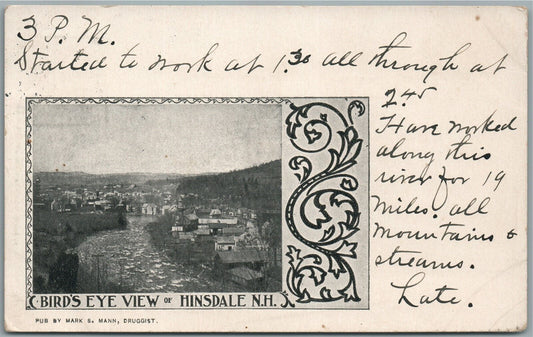 3 P.M.
Started to work at 1.30 all through at
2.45
Have worked
along this
river for 19
miles. all
mountains &
streams.
Late.
BIRD'S EYE VIEW OF HINSDALE N.H.
PUB BY MARK S. MANN, DRUGGIST.